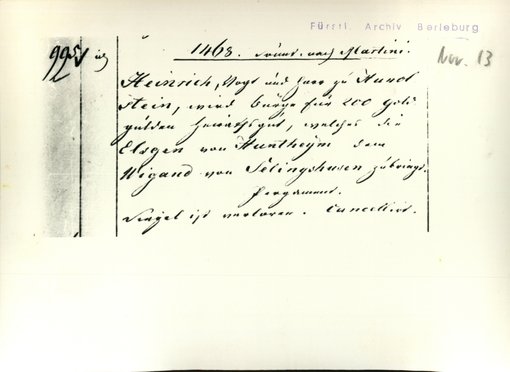 Fürstl. Archiv Berleburg
1468. nach Martini.
Nov. 13
Heinrich, Vogt und Herr zu Hunol
stein, wird Bürge für 200 gold
gülden Heirathsgut, welches die
Elsgen von Huntheym dem
Wigand von Selingshusen zubringt.
Pergament.
Siegel ist verloren. Cancellirt.